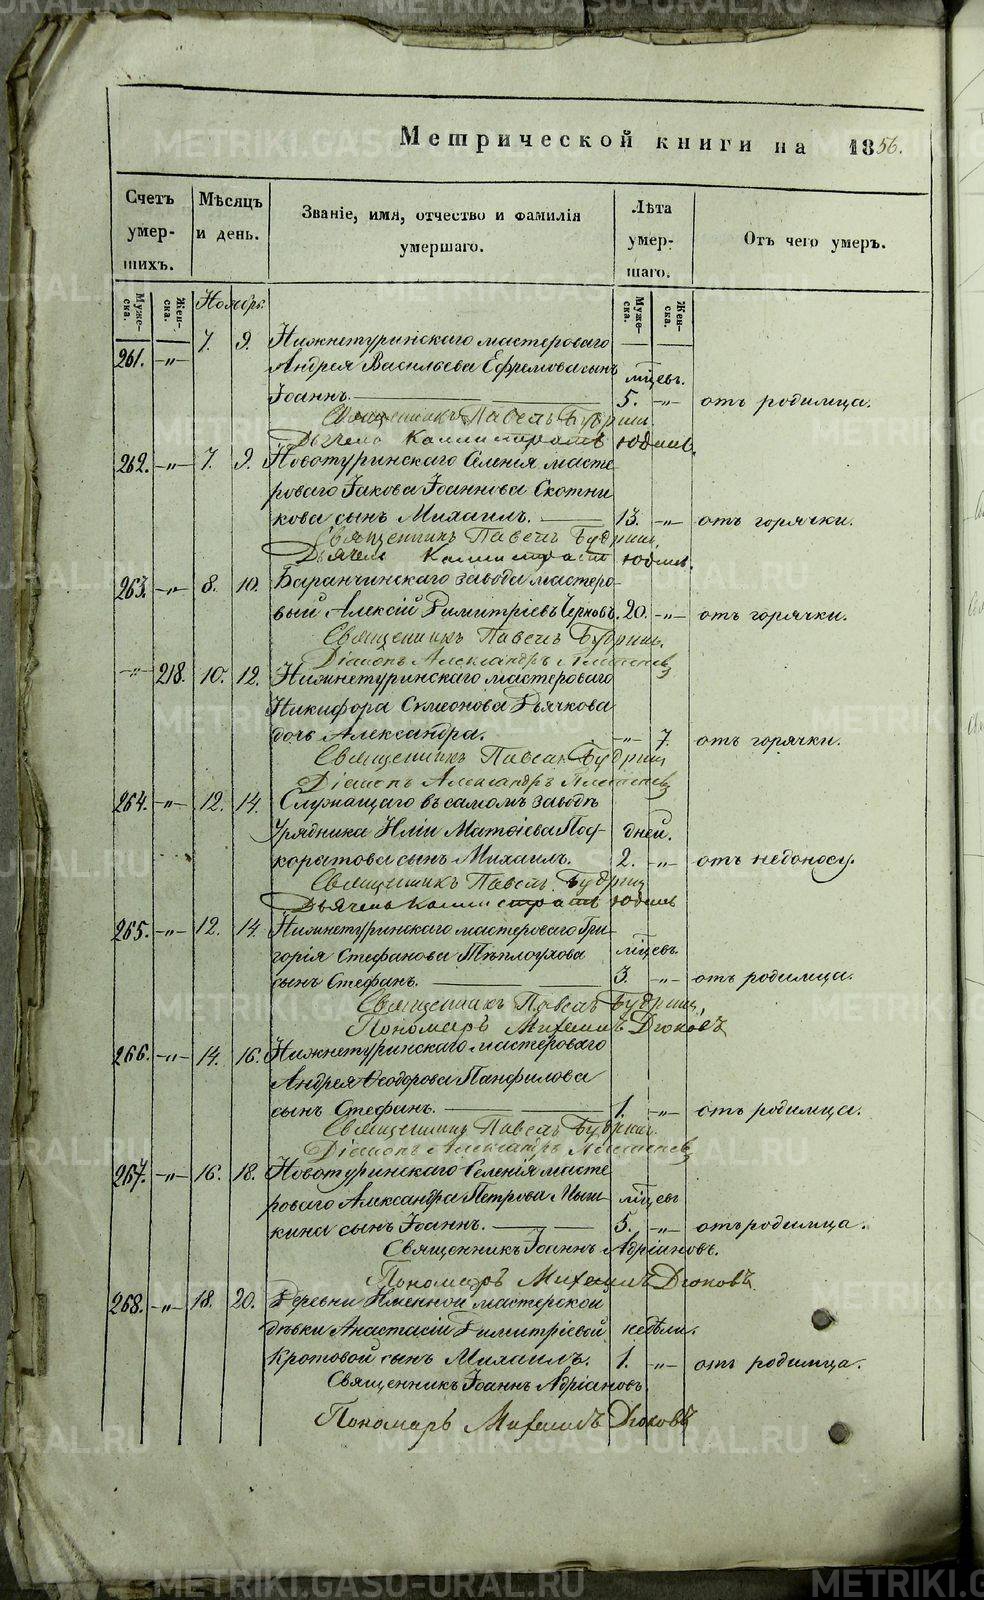 Метрической книги на 1856.
Счетъ умершихъ.
Мѣсяцъ и день.
Званіе, имя, отчество и фамилія умершаго.
Лѣта умершаго.
Отъ чего умеръ.
Мужеска. Женска. Ноябрь. Мужеска. Женска.
Нижнетуринскаго мастероваго
261. -„- 7. 9. Андрея Васильева Ефремова сынъ мѣсяц.
Іоаннъ. 5. -„- отъ родимца.
Священникъ Павелъ Будрин
Дьячекъ Каллистратъ Юдинъ.
262. -„- 7. 9. Новотуринскаго Селенія масте-
роваго Іакова Іоаннова Скотни
кова сынъ Михаилъ. 13. -„- отъ горячки.
Священникъ Павелъ Будрин
Дьячекъ Каллистратъ Юдинъ.
263. -„- 8. 10. Баранчинскаго завода мастеро-
вый Алексій Димитріевъ Черновъ. 20. -„- отъ горячки.
Священникъ Павелъ Будрин
Діаконъ Александръ
-„- 218. 10. 12. Нижнетуринскаго мастероваго
Никифора Симеонова Дьячкова
дочь Александра. -„- 7. отъ горячки.
Священникъ Павелъ Будрин
Діаконъ Александръ
264. -„- 12. 14. Служащаго въ самомъ заводѣ
Урядника Иліи Матѳіева Под- дней.
коратова сынъ Михаилъ. 2. -„- отъ недоносу.
Священникъ Павелъ Будрин
Дьячекъ Каллистратъ Юдинъ
265. -„- 12. 14. Нижнетуринскаго мастероваго Гри-
горія Стефанова Тѣплоухова мѣсяц.
сынъ Стефанъ. 3. -„- отъ родимца.
Священникъ Павелъ Будрин
Пономарь Михаилъ Дюковъ
266. -„- 14. 16. Нижнетуринскаго мастероваго
Андрея Ѳеодорова Панфилова
сынъ Стефанъ. 1. -„- отъ родимца.
Священникъ Павелъ Будрин
Діаконъ Александръ
267. -„- 16. 18. Новотуринскаго Селенія масте
роваго Александра Петрова Мыш- мѣсяц
кина сынъ Іоаннъ. 5. -„- отъ родимца.
Священникъ Іоаннъ Адріановъ.
Пономарь Михаилъ Дюковъ
268. -„- 18. 20. Деревни Именной мастерской
дѣвки Анастасіи Димитріевой недѣли.
Кротовой сынъ Михаилъ. 1. -„- отъ родимца.
Священникъ Іоаннъ Адріановъ
Пономарь Михаилъ Дюковъ
METRIKI.GASO-URAL.RU